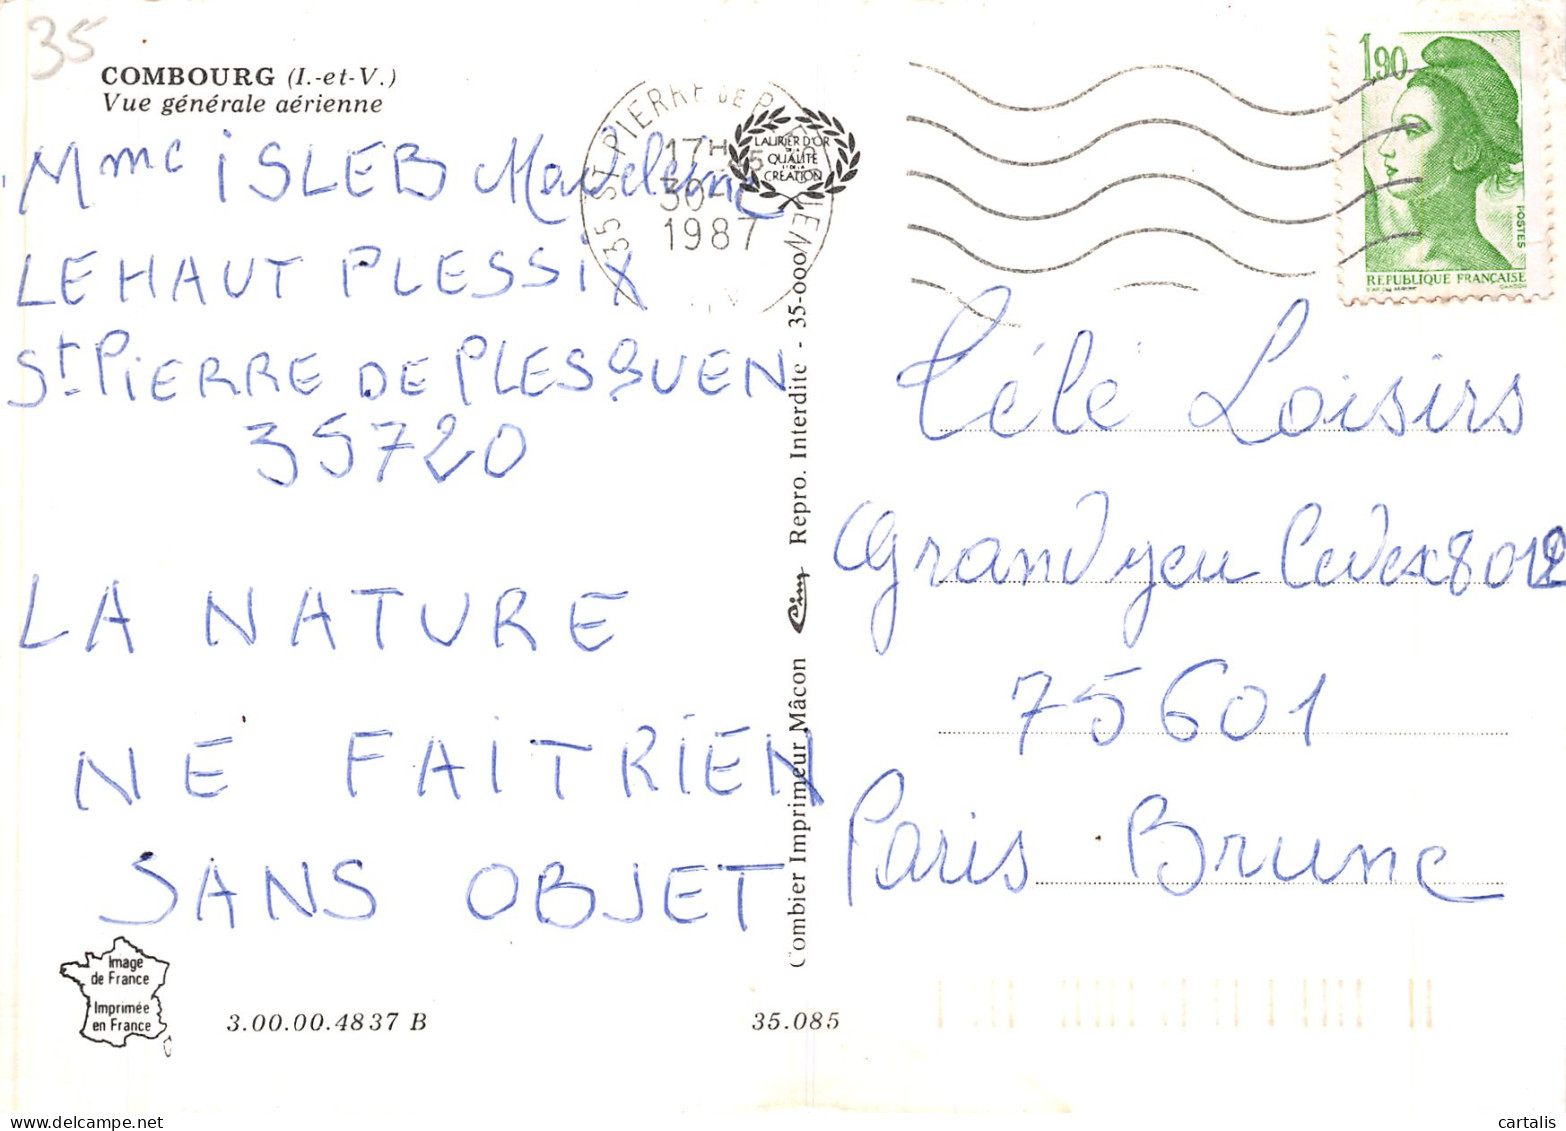 35
COMBOURG (I.-et-V.)
Vue générale aérienne
Mme iSLEB Madeleine
LE HAUT PLESSiX
St PiERRE DE PLESGUEN
35720
LA NATURE
NE FAiT RiEN
SANS OBJET
Image
de France
Imprimée
en France
3.00.00.4837 B
35.085
35 ST PIERRE DE
17H
30
1987
LAURIER D'OR
DE LA
QUALITÉ
ET DE LA
CRÉATION
Combier Imprimeur Mâcon Cim Repro. Interdite - 35-000
1,90
POSTES
REPUBLIQUE FRANÇAISE
GANDON
Télé Loisirs
Grand jeu Cedex 8012
75601
Paris Brune
cartalis